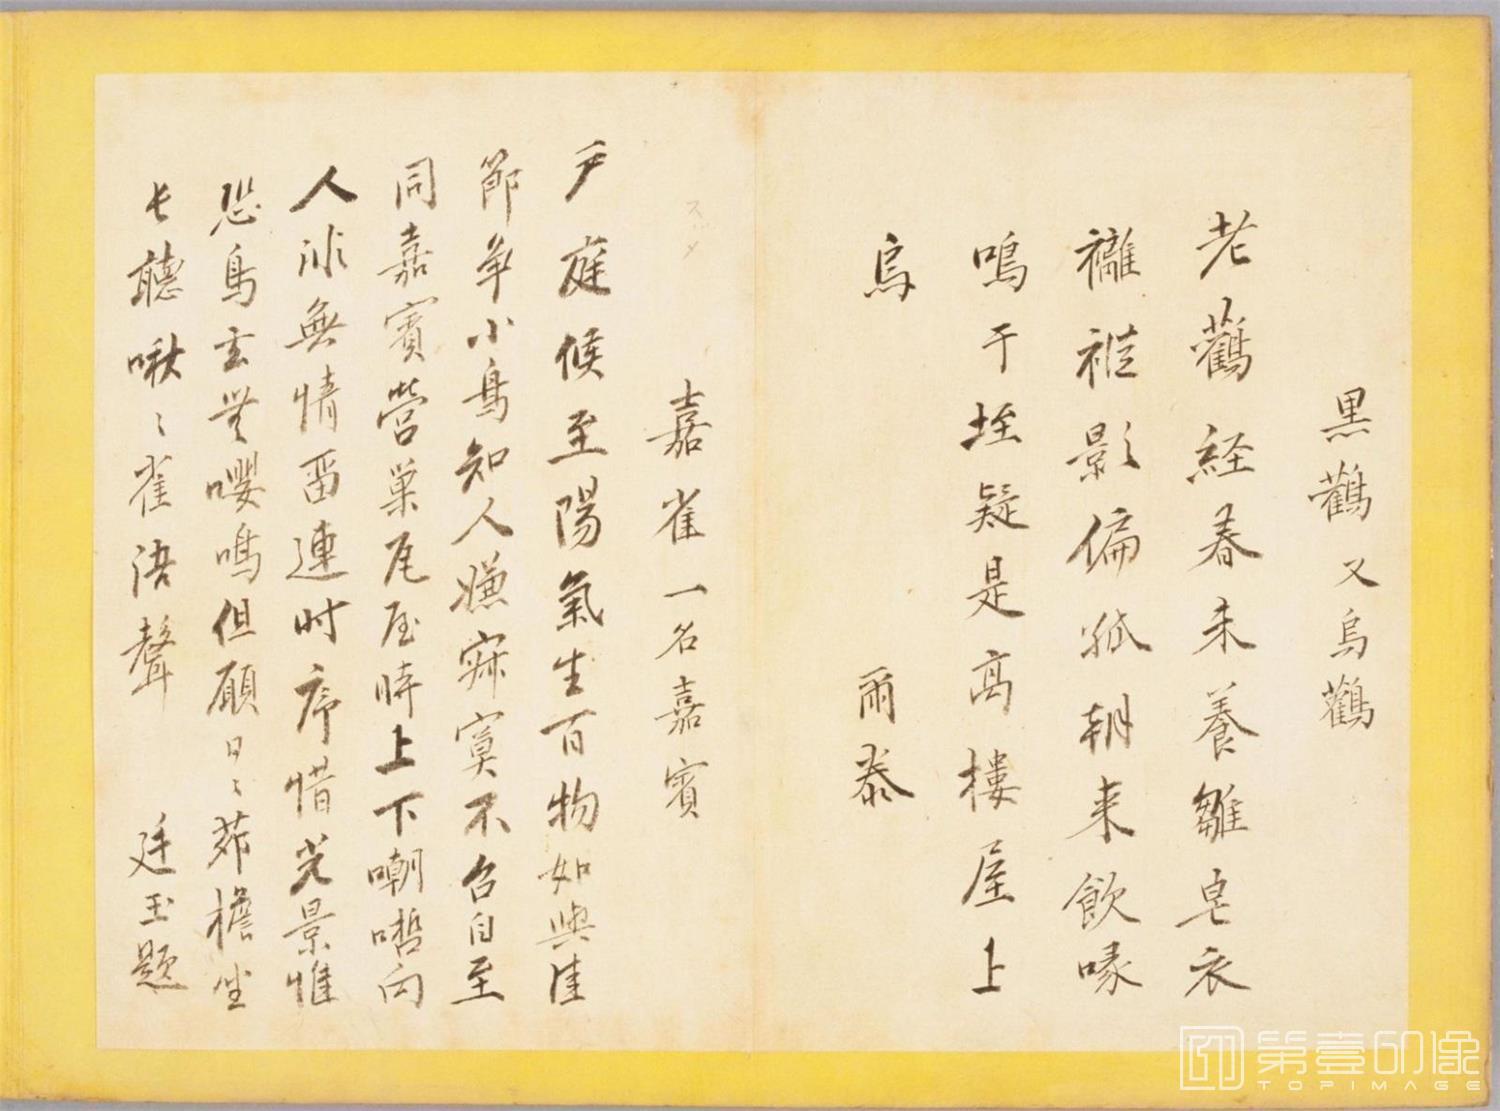 黒鸛又烏鸛
老鸛経春未養雛皂衣
襹褷影偏孤朝来飲啄
鳴于垤疑是高樓屋上
烏
爾泰
嘉雀一名嘉賓
戸庭候至陽氣生百物如與佳
節争小鳥知人嫌寂寞不召自至
同嘉賓營巢尾屋時上下嘲哳向
人非無情畱連時序惜光景惟
恐鳥去楽嚶鳴但願日〻茆檐坐
長聽啾〻雀語聲
廷玉題
第壹印像
TOPIMAGE